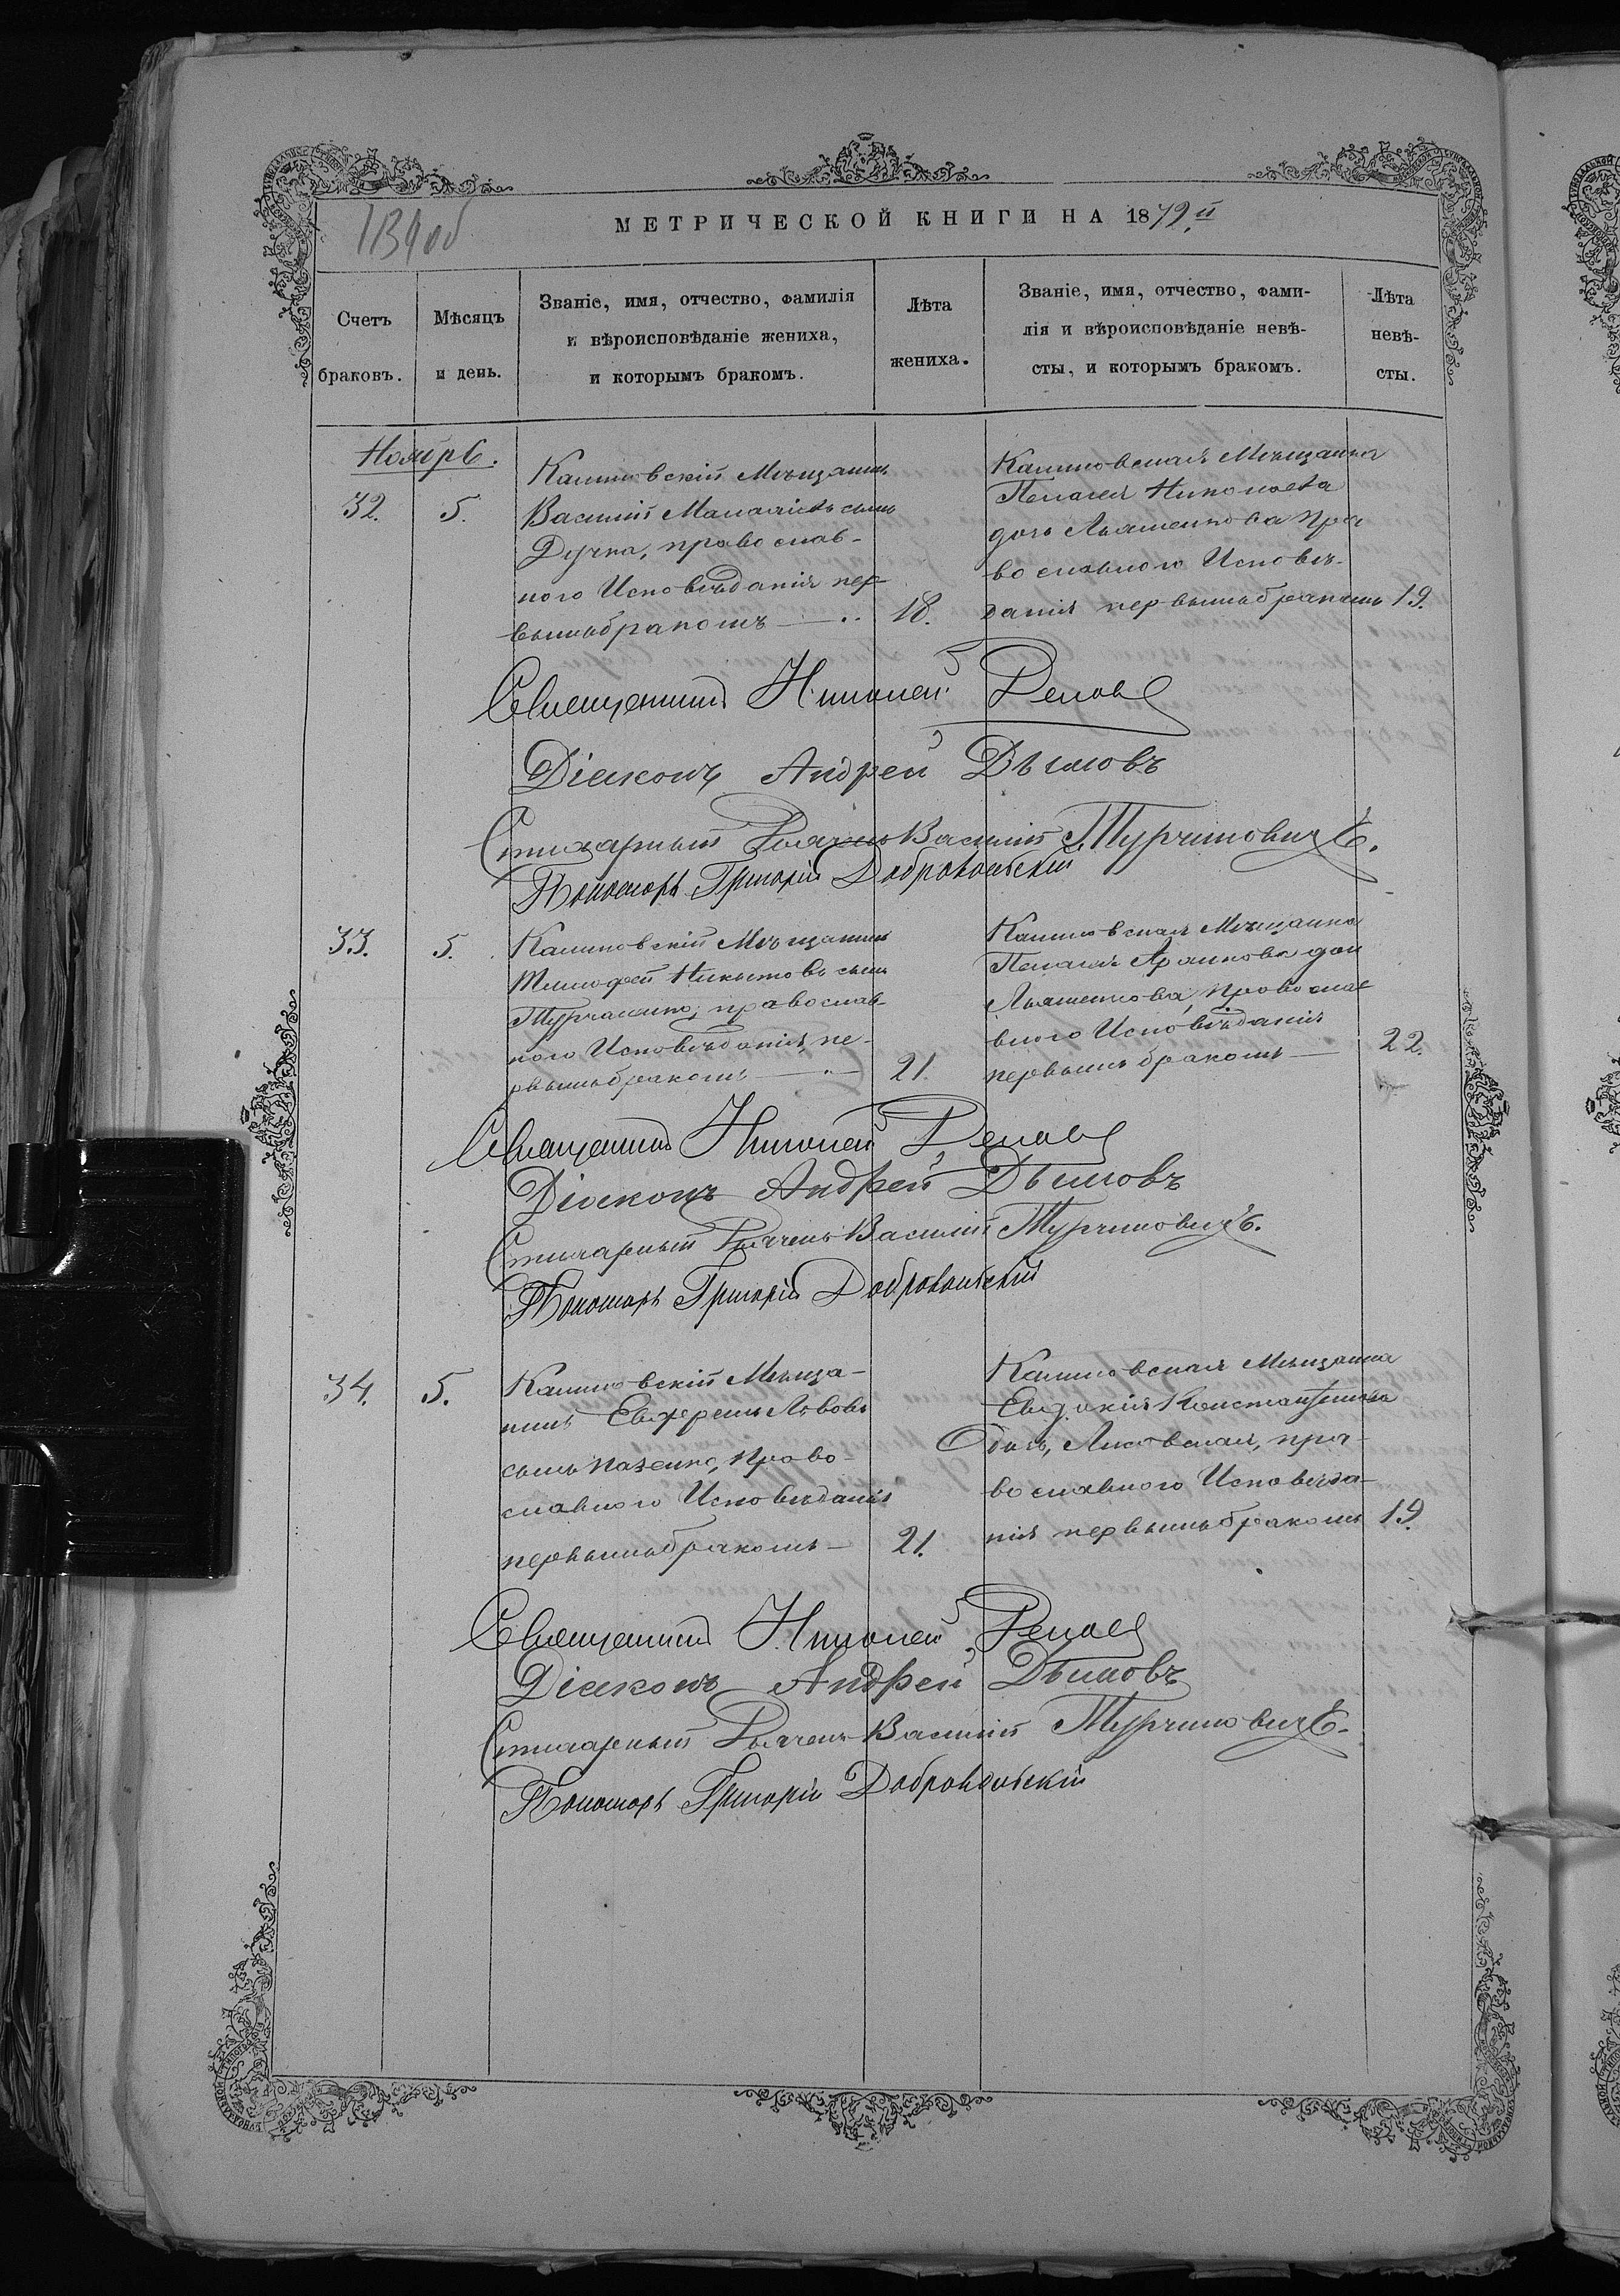 МЕТРИЧЕСКОЙ КНИГИ НА 1879й
134об
Счетъ браковъ.
Мѣсяцъ и день.
Званіе, имя, отчество, фамилія
и вѣроисповѣданіе жениха,
и которымъ бракомъ.
Лѣта жениха.
Званіе, имя, отчество, фами-
лія и вѣроисповѣданіе невѣ-
сты, и которымъ бракомъ.
Лѣта невѣ-
сты.
Ноябрь.
32. 5.
Мѣщанинъ
Василій сынъ
Дучка, православ-
ного Исповѣданія пер-
вымъ бракомъ 18.
Мѣщанка
Пелагея Николаева
дочь Ляшенкова Пра
вославного Исповѣ-
данія первымъ бракомъ 19.
Священникъ Николай
Діаконъ Андрей Дымовъ
Стихарный Василій Турчиновичъ.
Пономарь Григорій Добровольскій
33. 5.
Мѣщанинъ
Тимофей сынъ
православ-
ного Исповѣданія, пе-
рвымъ бракомъ 21.
Мѣщанка
Пелагея
Ляшенкова, Православ
вного Исповѣданія
первымъ бракомъ 22.
Священникъ Николай
Діаконъ Андрей Дымовъ
Стихарный Василій Турчиновичъ.
Пономарь Григорій Добровольскій
34. 5.
Мѣща-
нинъ Ефремъ Львовъ
сынъ Право-
славного Исповѣданія
первымъ бракомъ 21.
Мѣщанка
Евдокія Константинова
Лисовская, пра-
вославного Исповѣда-
нія первымъ бракомъ 19.
Священникъ Николай
Діаконъ Андрей Дымовъ
Стихарный Василій Турчиновичъ.
Пономарь Григорій Добровольскій